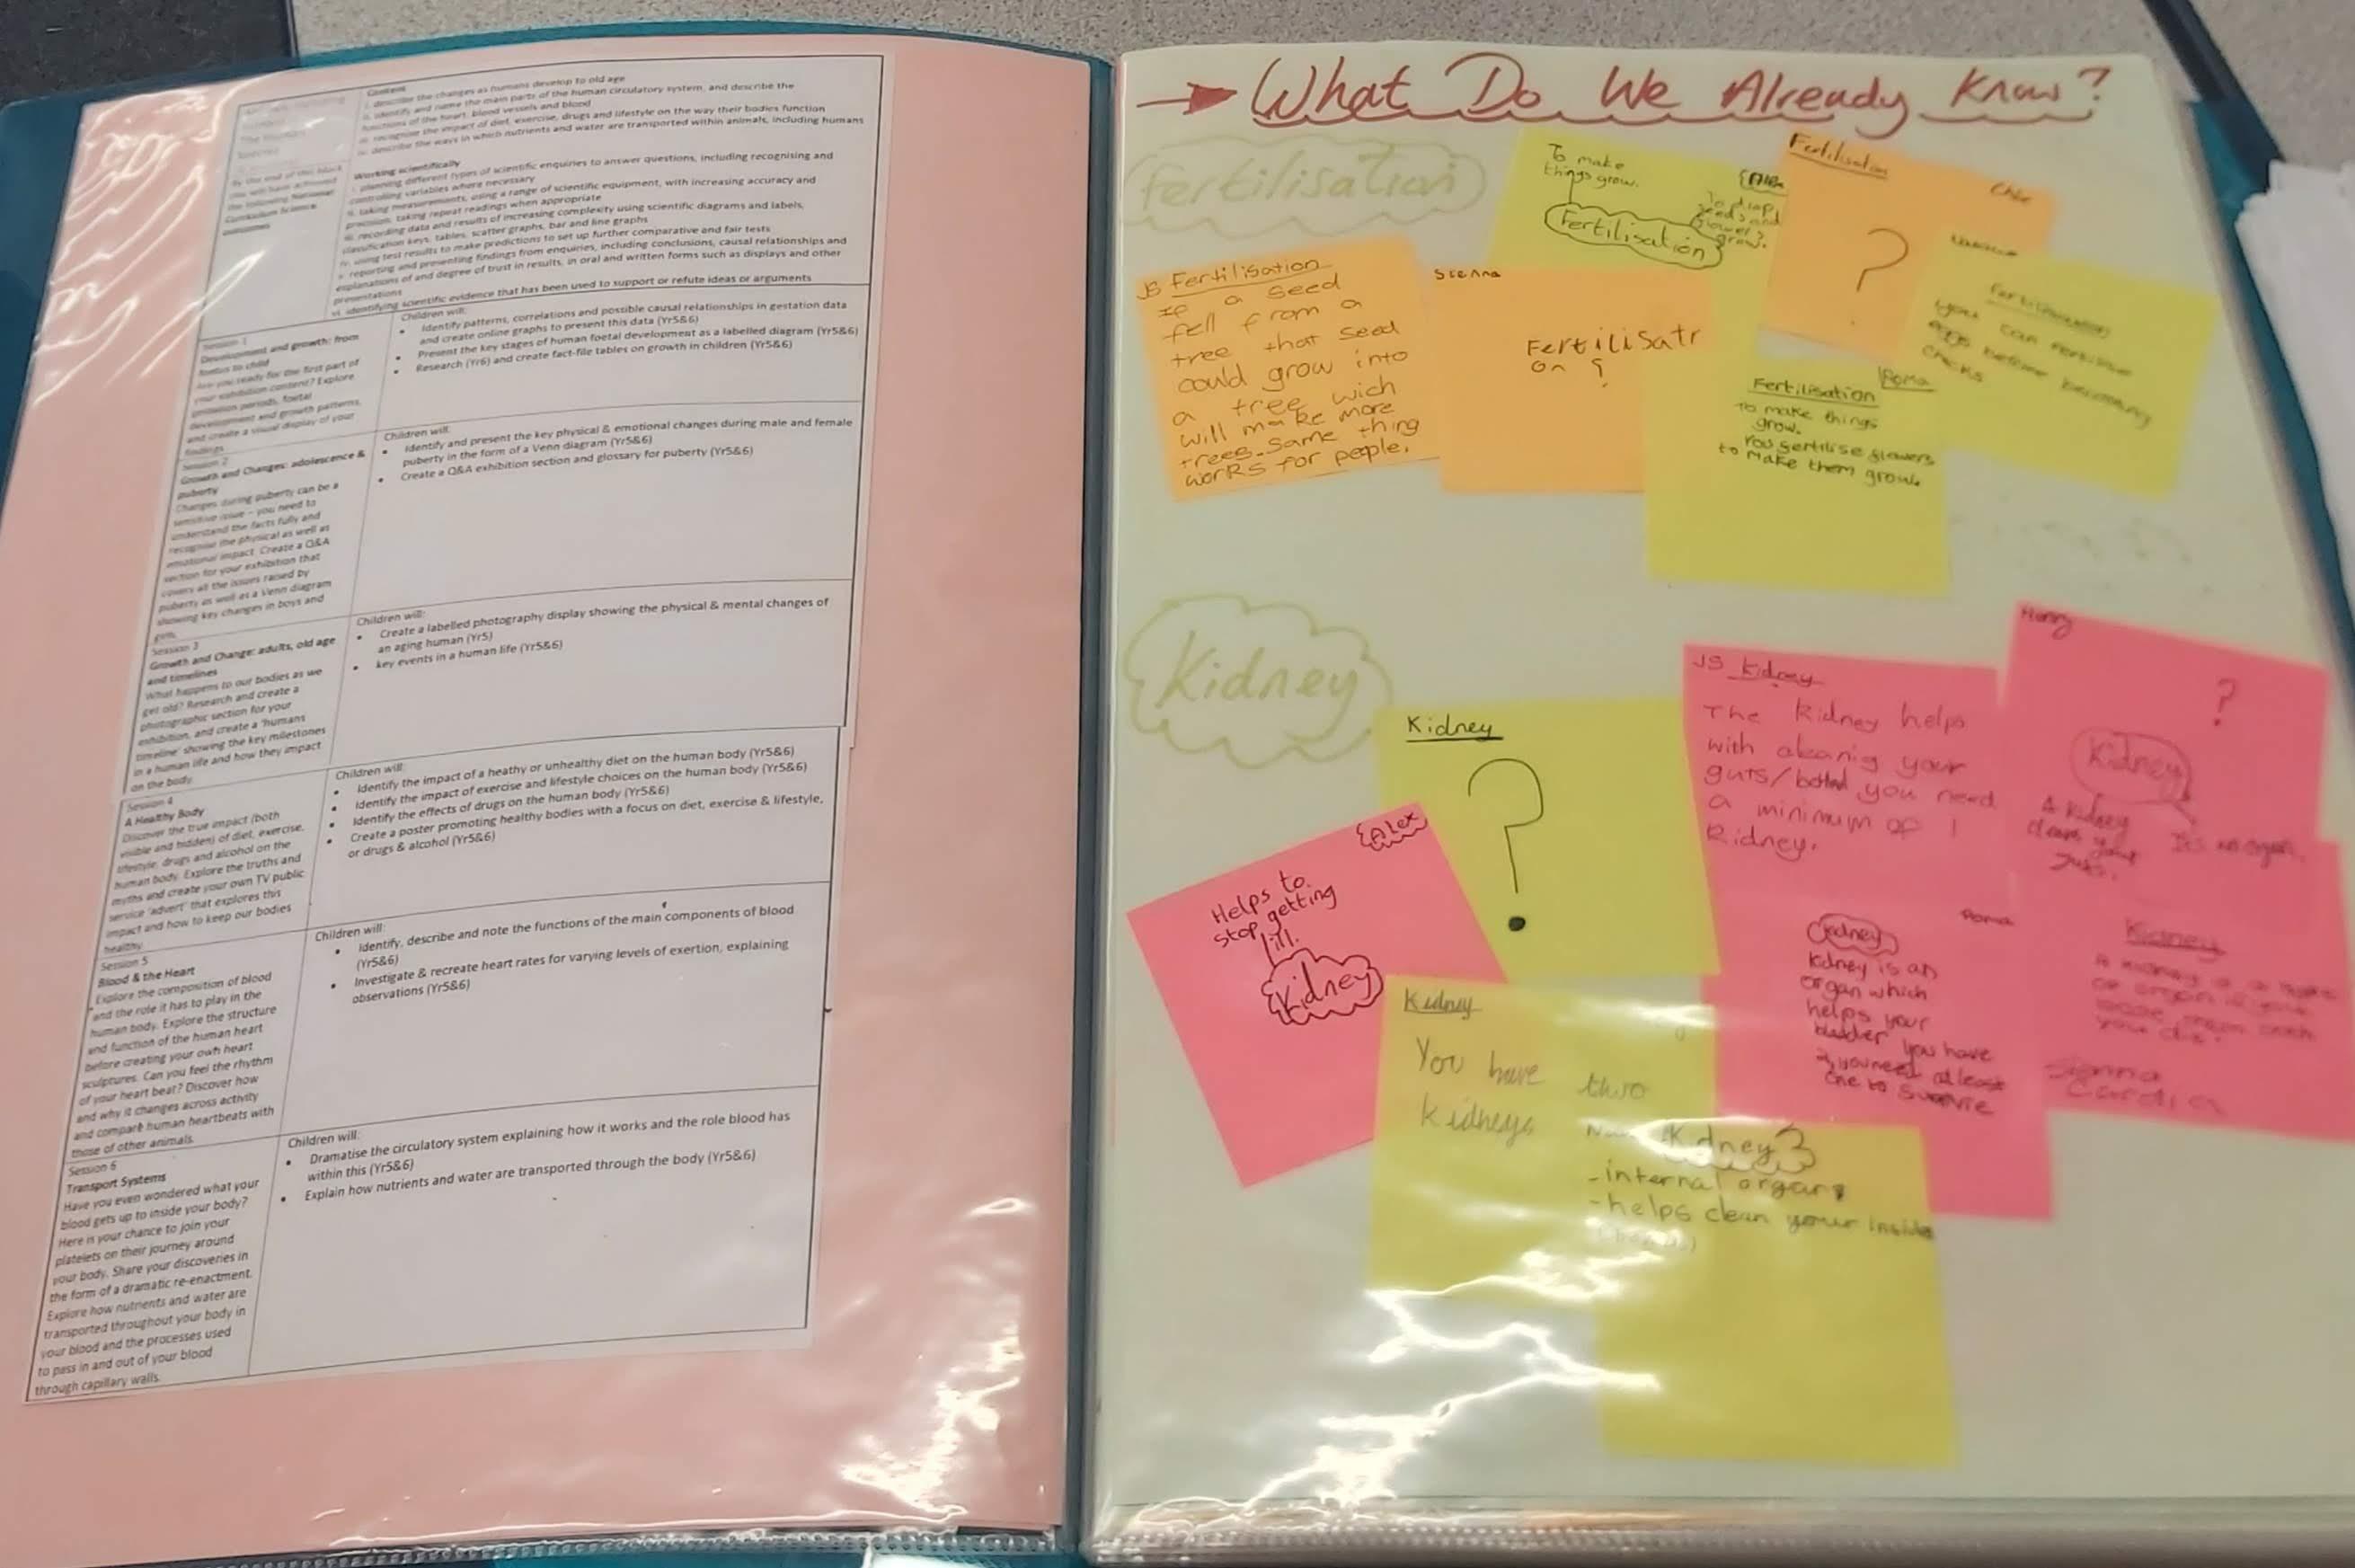 Content
i. describe the changes as humans develop to old age
ii. identify and name the main parts of the human circulatory system, and describe the
functions of the heart, blood vessels and blood
iii. recognise the impact of diet, exercise, drugs and lifestyle on the way their bodies function
iv. describe the ways in which nutrients and water are transported within animals, including humans
By the end of this block
you will have achieved
the following National
Curriculum Science
outcomes
Working scientifically
i. planning different types of scientific enquiries to answer questions, including recognising and
controlling variables where necessary
ii. taking measurements, using a range of scientific equipment, with increasing accuracy and
precision, taking repeat readings when appropriate
iii. recording data and results of increasing complexity using scientific diagrams and labels,
classification keys, tables, scatter graphs, bar and line graphs
iv. using test results to make predictions to set up further comparative and fair tests
v. reporting and presenting findings from enquiries, including conclusions, causal relationships and
explanations of and degree of trust in results, in oral and written forms such as displays and other
presentations
vi. identifying scientific evidence that has been used to support or refute ideas or arguments
Session 1
Development and growth: from
foetus to child
Are you ready for the first part of
your exhibition content? Explore
gestation periods, foetal
development and growth patterns,
and create a visual display of your
findings
Children will:
• Identify patterns, correlations and possible causal relationships in gestation data
and create online graphs to present this data (Yr5&6)
• Present the key stages of human foetal development as a labelled diagram (Yr5&6)
• Research (Yr6) and create fact-file tables on growth in children (Yr5&6)
Session 2
Growth and Changes: adolescence &
puberty
Changes during puberty can be a
sensitive issue – you need to
understand the facts fully and
recognise the physical as well as
emotional impact. Create a Q&A
section for your exhibition that
covers all the issues raised by
puberty as well as a Venn diagram
showing key changes in boys and
girls.
Children will:
• Identify and present the key physical & emotional changes during male and female
puberty in the form of a Venn diagram (Yr5&6)
• Create a Q&A exhibition section and glossary for puberty (Yr5&6)
Session 3
Growth and Change: adults, old age
and timelines
What happens to our bodies as we
get old? Research and create a
photographic section for your
exhibition, and create a 'humans
timeline' showing the key milestones
in a human life and how they impact
on the body.
Children will:
• Create a labelled photography display showing the physical & mental changes of
an aging human (Yr5)
• key events in a human life (Yr5&6)
Session 4
A Healthy Body
Discover the true impact (both
visible and hidden) of diet, exercise,
lifestyle, drugs and alcohol on the
human body. Explore the truths and
myths and create your own TV public
service 'advert' that explores this
impact and how to keep our bodies
healthy.
Children will:
• Identify the impact of a heathy or unhealthy diet on the human body (Yr5&6)
• Identify the impact of exercise and lifestyle choices on the human body (Yr5&6)
• Identify the effects of drugs on the human body (Yr5&6)
• Create a poster promoting healthy bodies with a focus on diet, exercise & lifestyle,
or drugs & alcohol (Yr5&6)
Session 5
Blood & the Heart
Explore the composition of blood
and the role it has to play in the
human body. Explore the structure
and function of the human heart
before creating your own heart
sculptures. Can you feel the rhythm
of your heart beat? Discover how
and why it changes across activity
and compare human heartbeats with
those of other animals.
Children will:
• Identify, describe and note the functions of the main components of blood
(Yr5&6)
• Investigate & recreate heart rates for varying levels of exertion, explaining
observations (Yr5&6)
Session 6
Transport Systems
Have you even wondered what your
blood gets up to inside your body?
Here is your chance to join your
platelets on their journey around
your body. Share your discoveries in
the form of a dramatic re-enactment.
Explore how nutrients and water are
transported throughout your body in
your blood and the processes used
to pass in and out of your blood
through capillary walls.
Children will:
• Dramatise the circulatory system explaining how it works and the role blood has
within this (Yr5&6)
• Explain how nutrients and water are transported through the body (Yr5&6)
What Do We Already Know?
Fertilisation
To make
things grow.
Fertilisation
Alex
To
seeds and
flowers
grow.
Fertilisation
Chloe
?
JS Fertilisation
If a seed
fell from a
tree that seed
could grow into
a tree wich
will make more
trees. Same thing
works for people.
Sienna
Fertilisati
on ?
Roma
Fertilisation
To make things
grow.
You fertilise flowers
to make them grow.
Fertilisation
you can fertilise
eggs before becoming
chicks
Kidney
Kidney
?
Alex
Helps to
stop getting
ill.
Kidney
JS Kidney
The Kidney helps
with cleaning your
guts/ you need
a minimum of 1
Kidney.
Henry
?
Kidney
A Kidney
cleans your
Its an organ.
Roma
Kidney
Kidney is an
organ which
helps your
bladder you have
2, you need at least
one to survive
Kidney
A kidney is a
or organ
you die.
Sienna
Kidney
You have two
kidneys
Kidney
-internal organ
-helps clean your inside